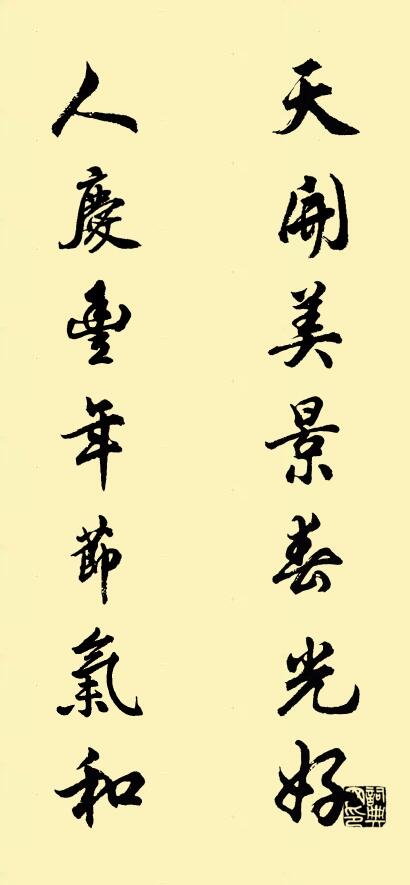 天開美景春光好
人慶豐年節氣和